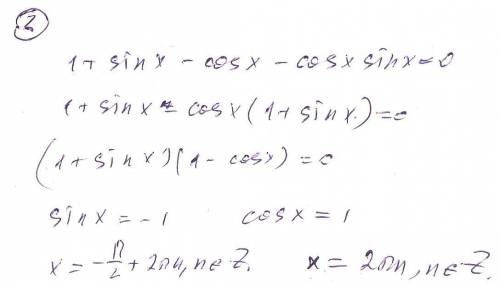 2
1 + sin x - cos x - cos x sin x = 0
1 + sin x - cos x (1 + sin x) = 0
(1 + sin x)(1 - cos x) = 0
sin x = -1 cos x = 1
x = -π/2 + 2πn, n ∈ Z. x = 2πn, n ∈ Z.